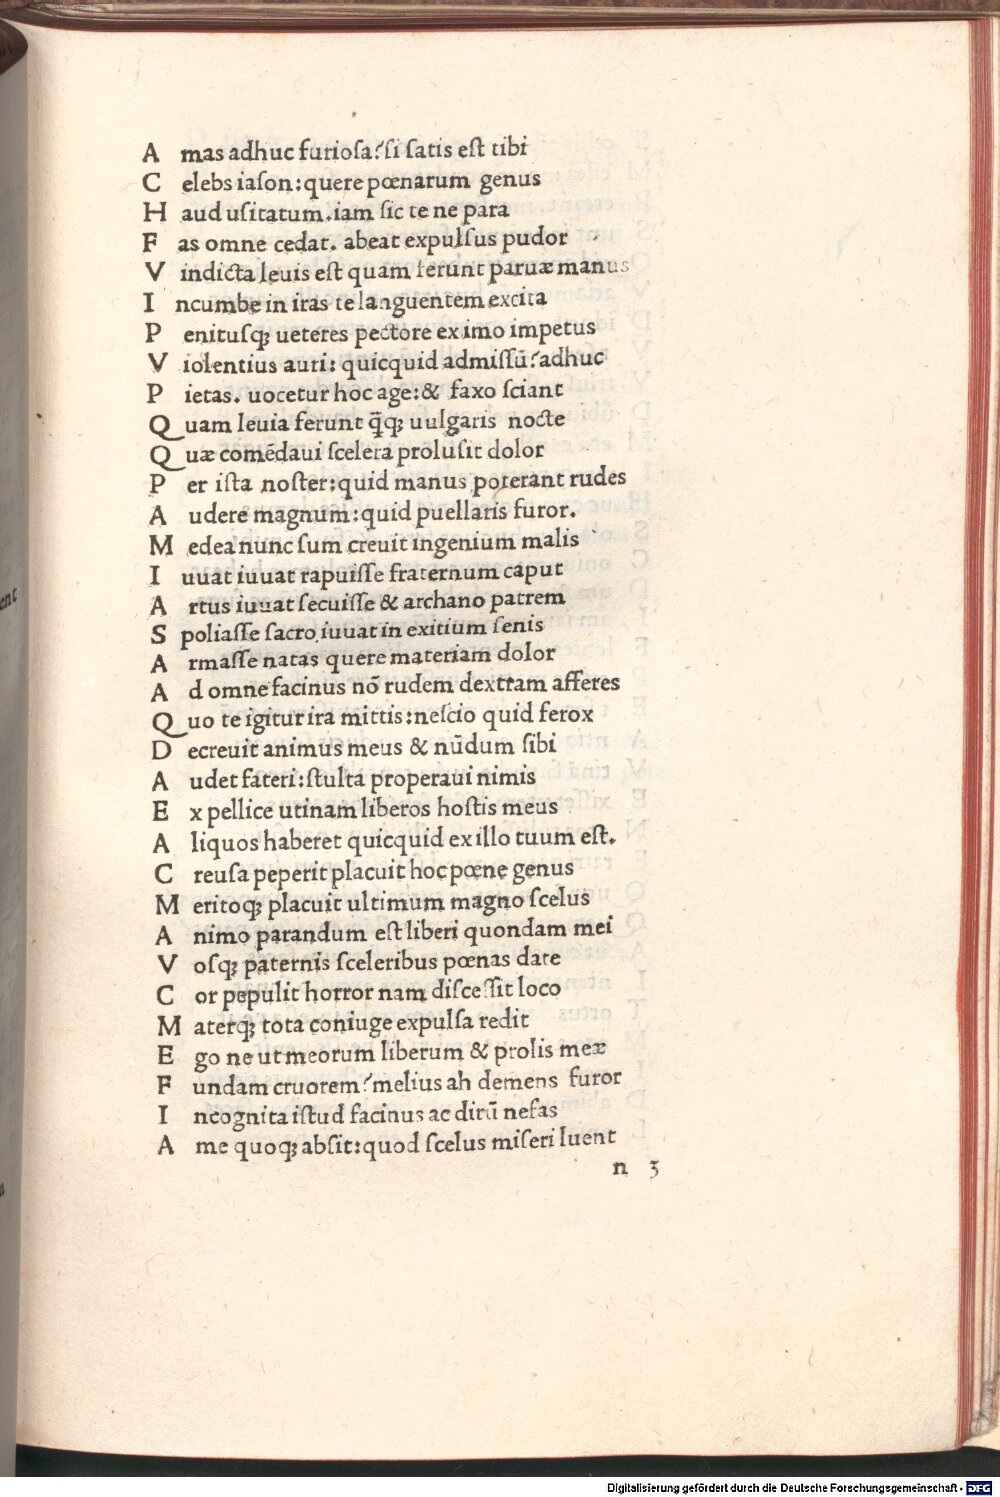 A mas adhuc furiosa? si satis est tibi
C elebs iason: quere pœnarum genus
H aud usitatum. iam sic te ne para
F as omne cedat. abeat expulsus pudor
V indicta leuis est quam ferunt paruæ manus
I ncumbe in iras te languentem excita
P enitusqꝫ ueteres pectore ex imo impetus
V iolentius auri: quicquid admissũ? adhuc
P ietas. uocetur hoc age: & faxo sciant
Q uam leuia ferunt q̃qꝫ uulgaris nocte
Q uæ comẽdaui scelera prolusit dolor
P er ista noster: quid manus poterant rudes
A udere magnum: quid puellaris furor.
M edea nunc sum creuit ingenium malis
I uuat iuuat rapuisse fraternum caput
A rtus iuuat secuisse & archano patrem
S poliasse sacro iuuat in exitium senis
A rmasse natas quere materiam dolor
A d omne facinus nõ rudem dextram afferes
Q uo te igitur ira mittis: nescio quid ferox
D ecreuit animus meus & nũdum sibi
A udet fateri: stulta properaui nimis
E x pellice utinam liberos hostis meus
A liquos haberet quicquid ex illo tuum est.
C reusa peperit placuit hoc pœne genus
M eritoqꝫ placuit ultimum magno scelus
A nimo parandum est liberi quondam mei
V osqꝫ paternis sceleribus pœnas date
C or pepulit horror nam discessit loco
M aterqꝫ tota coniuge expulsa redit
E go ne ut meorum liberum & prolis meæ
F undam cruorem? melius ah demens furor
I ncognita istud facinus ac dirũ nefas
A me quoqꝫ absit: quod scelus miseri luent
n 3
Digitalisierung gefördert durch die Deutsche Forschungsgemeinschaft - DFG